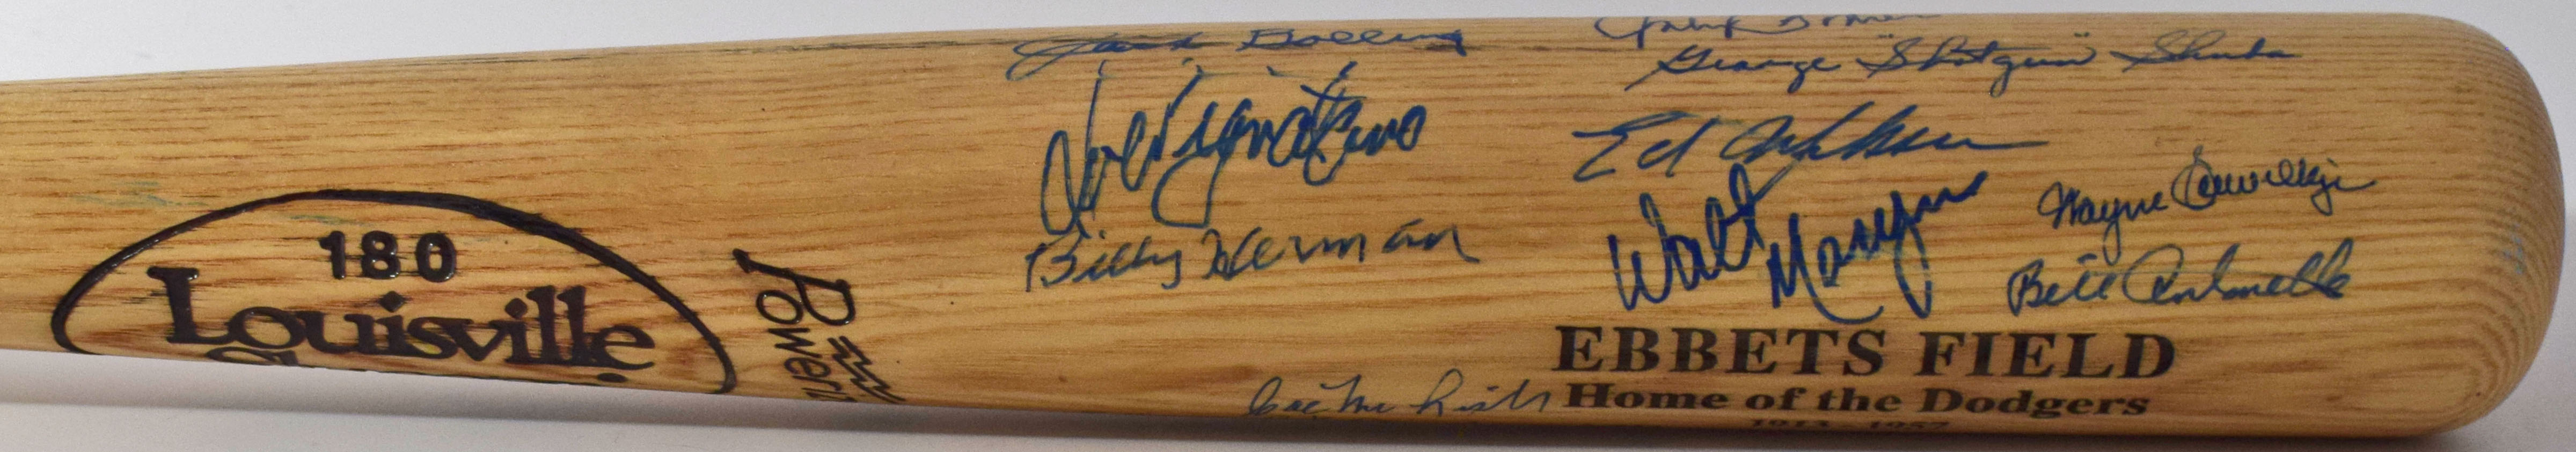 Jack Bolling
George "Shotgun" Shuba
Joe Pignatano
Ed
Billy Herman
Walt Moryn
Wayne Terwilliger
Bill Antonello
180
Louisville
Powerized
EBBETS FIELD
Home of the Dodgers
1913 - 1957